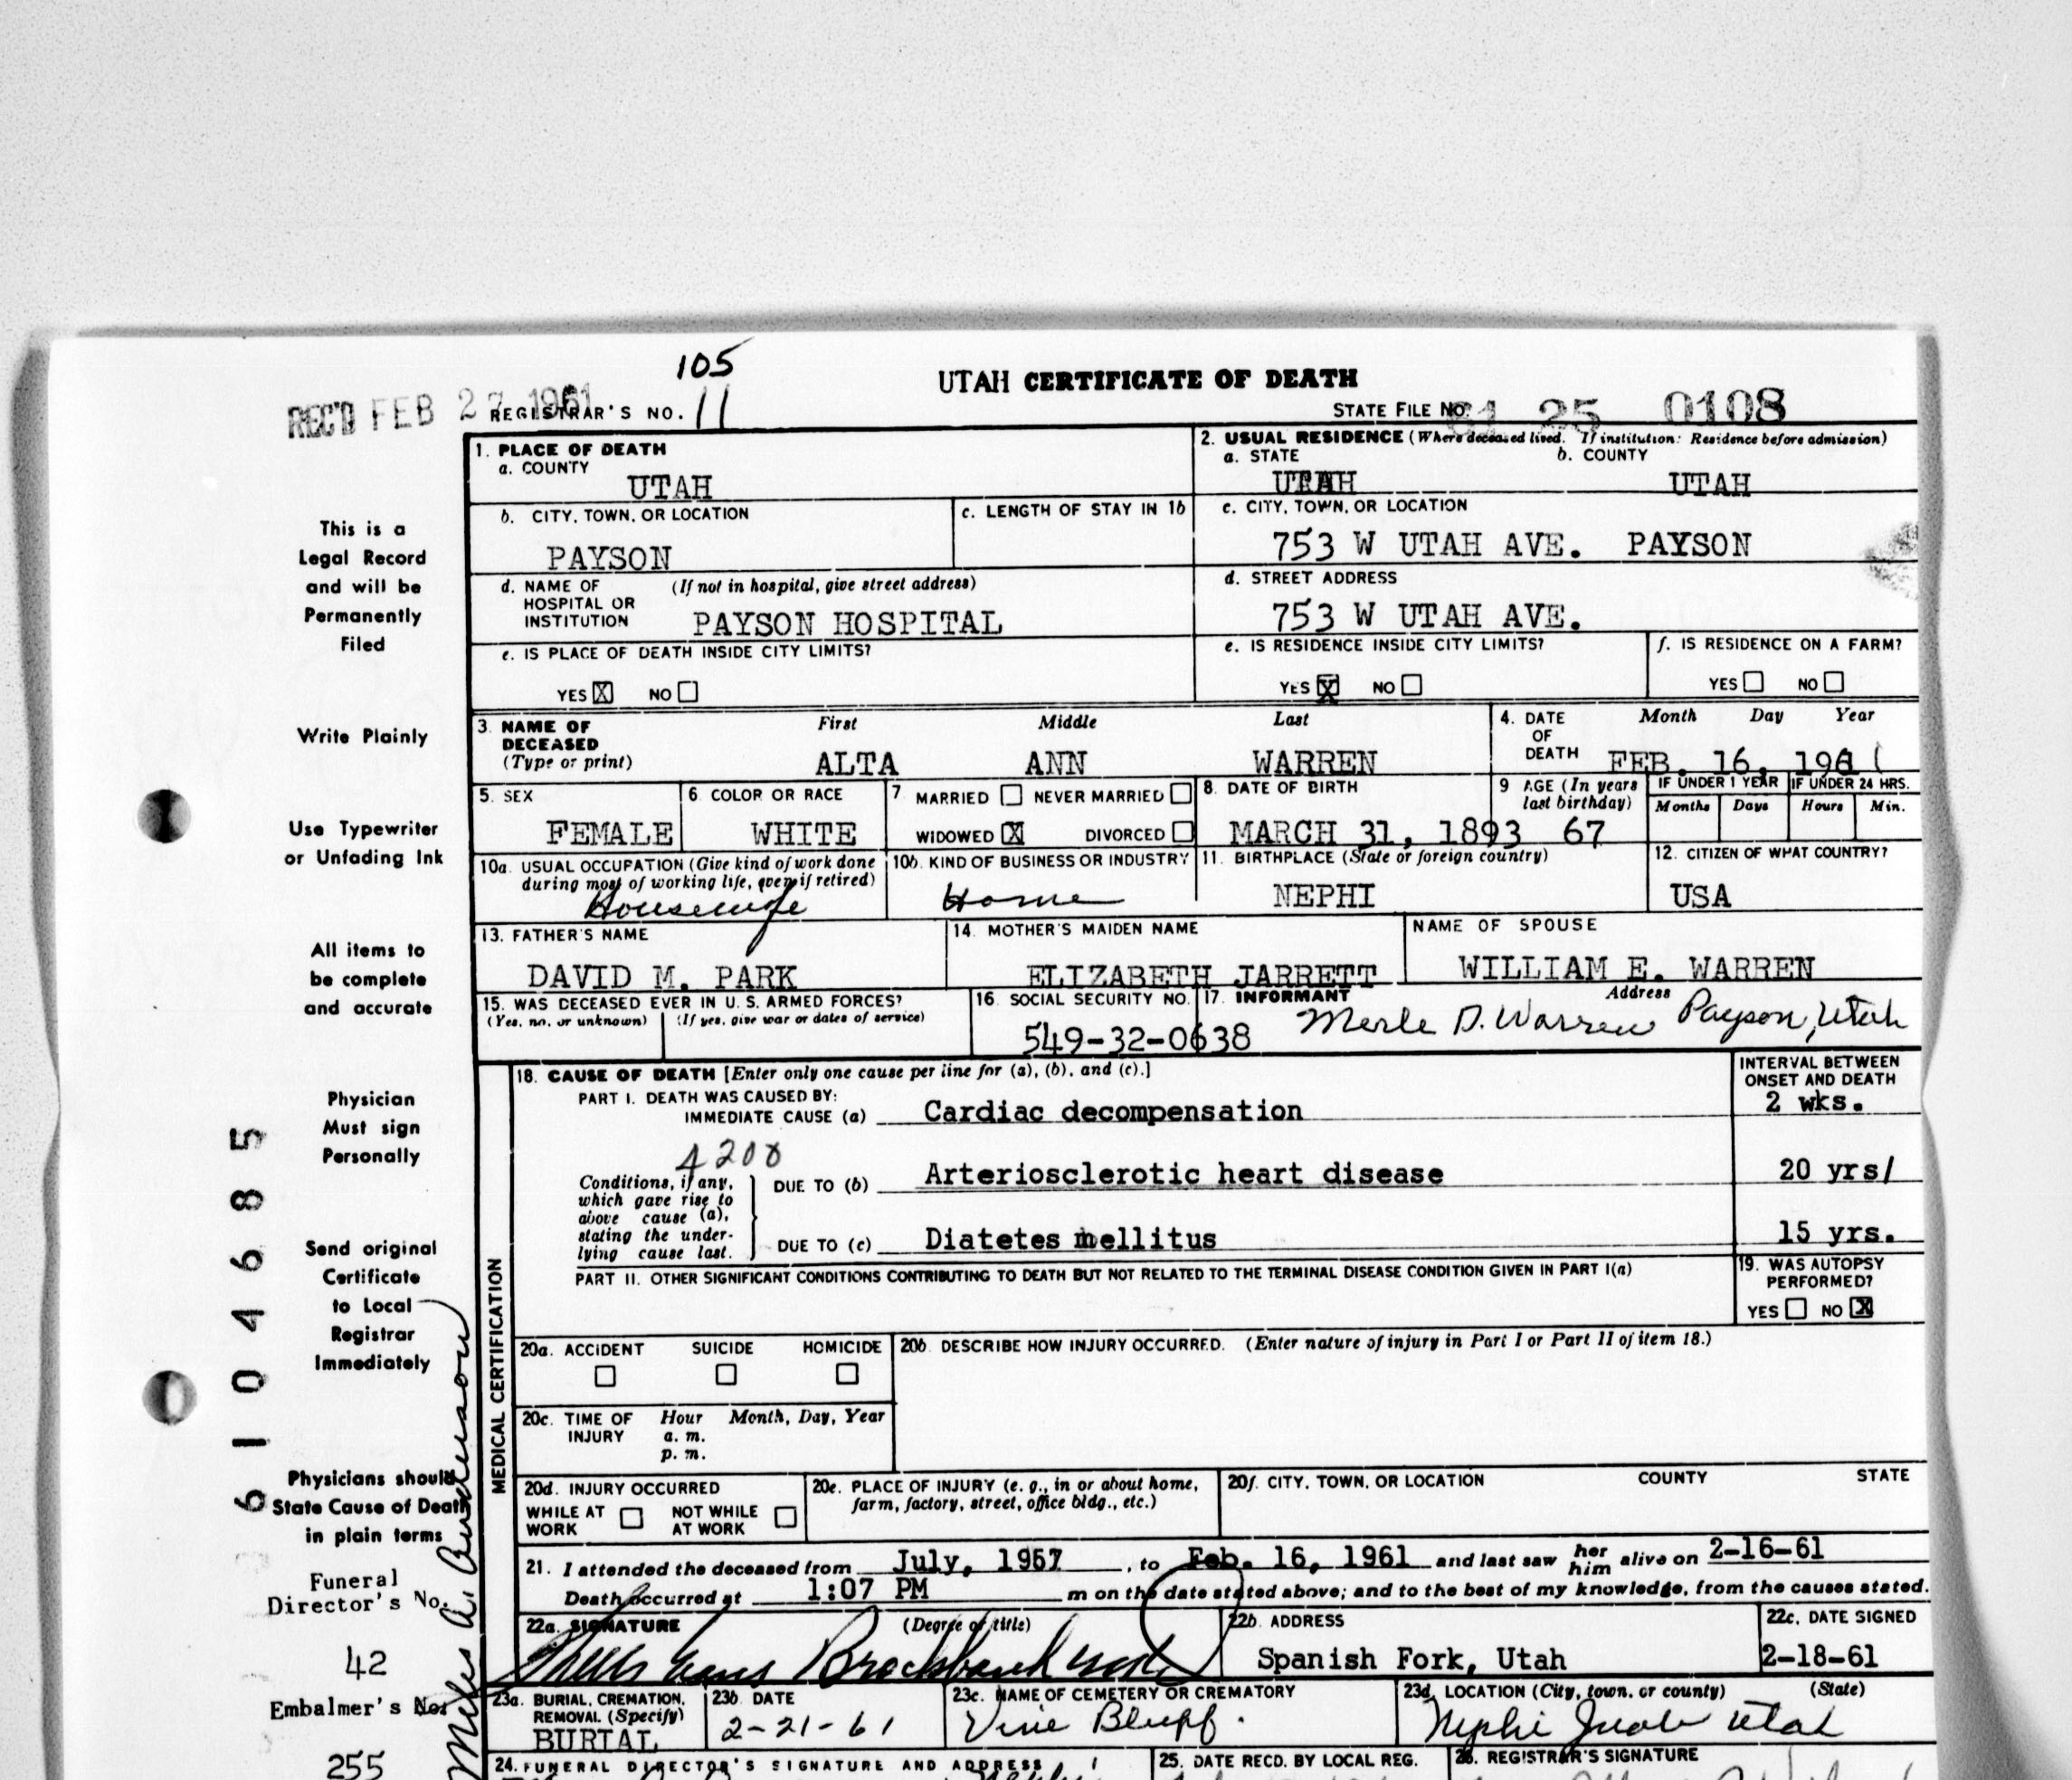 105
UTAH CERTIFICATE OF DEATH
REC'D FEB 27 1961
REGISTRAR'S NO. 11
STATE FILE NO. 61 25 0108
1. PLACE OF DEATH
a. COUNTY
UTAH
2. USUAL RESIDENCE (Where deceased lived. If institution: Residence before admission)
a. STATE b. COUNTY
UTAH UTAH
b. CITY, TOWN, OR LOCATION
PAYSON
c. LENGTH OF STAY IN 1b
c. CITY, TOWN, OR LOCATION
753 W UTAH AVE. PAYSON
d. NAME OF HOSPITAL OR INSTITUTION (If not in hospital, give street address)
PAYSON HOSPITAL
d. STREET ADDRESS
753 W UTAH AVE.
e. IS PLACE OF DEATH INSIDE CITY LIMITS?
YES X NO
e. IS RESIDENCE INSIDE CITY LIMITS?
YES X NO
f. IS RESIDENCE ON A FARM?
YES NO
3. NAME OF DECEASED (Type or print)
First Middle Last
ALTA ANN WARREN
4. DATE OF DEATH
Month Day Year
FEB. 16, 1961
5. SEX
FEMALE
6. COLOR OR RACE
WHITE
7 MARRIED NEVER MARRIED
WIDOWED X DIVORCED
8. DATE OF BIRTH
MARCH 31, 1893
9 AGE (In years last birthday)
67
IF UNDER 1 YEAR
Months Days
IF UNDER 24 HRS.
Hours Min.
10a. USUAL OCCUPATION (Give kind of work done during most of working life, even if retired)
Housewife
10b. KIND OF BUSINESS OR INDUSTRY
Home
11. BIRTHPLACE (State or foreign country)
NEPHI
12. CITIZEN OF WHAT COUNTRY?
USA
13. FATHER'S NAME
DAVID M. PARK
14. MOTHER'S MAIDEN NAME
ELIZABETH JARRETT
NAME OF SPOUSE
WILLIAM E. WARREN
15. WAS DECEASED EVER IN U. S. ARMED FORCES?
(Yes, no, or unknown) (If yes, give war or dates of service)
16. SOCIAL SECURITY NO.
549-32-0638
17. INFORMANT Address
Merle D. Warren Payson, Utah
MEDICAL CERTIFICATION
18. CAUSE OF DEATH [Enter only one cause per line for (a), (b), and (c).]
INTERVAL BETWEEN ONSET AND DEATH
PART I. DEATH WAS CAUSED BY:
IMMEDIATE CAUSE (a) Cardiac decompensation 2 wks.
4200
Conditions, if any, which gave rise to above cause (a), stating the underlying cause last.
DUE TO (b) Arteriosclerotic heart disease 20 yrs/
DUE TO (c) Diatetes mellitus 15 yrs.
PART II. OTHER SIGNIFICANT CONDITIONS CONTRIBUTING TO DEATH BUT NOT RELATED TO THE TERMINAL DISEASE CONDITION GIVEN IN PART I(a)
19. WAS AUTOPSY PERFORMED?
YES NO X
20a. ACCIDENT SUICIDE HOMICIDE
20b. DESCRIBE HOW INJURY OCCURRED. (Enter nature of injury in Part I or Part II of item 18.)
20c. TIME OF INJURY Hour Month, Day, Year
a. m.
p. m.
20d. INJURY OCCURRED
WHILE AT WORK NOT WHILE AT WORK
20e. PLACE OF INJURY (e. g., in or about home, farm, factory, street, office bldg., etc.)
20f. CITY, TOWN, OR LOCATION COUNTY STATE
21. I attended the deceased from July, 1957, to Feb. 16, 1961 and last saw her him alive on 2-16-61
Death occurred at 1:07 PM m on the date stated above; and to the best of my knowledge, from the causes stated.
22a. SIGNATURE (Degree or title)
Brockbank
22b. ADDRESS
Spanish Fork, Utah
22c. DATE SIGNED
2-18-61
23a. BURIAL, CREMATION, REMOVAL (Specify)
BURIAL
23b. DATE
2-21-61
23c. NAME OF CEMETERY OR CREMATORY
Vine Bluff
23d. LOCATION (City, town, or county) (State)
Nephi Juab Utah
24. FUNERAL DIRECTOR'S SIGNATURE AND ADDRESS
25. DATE RECD. BY LOCAL REG.
26. REGISTRAR'S SIGNATURE
This is a
Legal Record
and will be
Permanently
Filed
Write Plainly
Use Typewriter
or Unfading Ink
All items to
be complete
and accurate
Physician
Must sign
Personally
Send original
Certificate
to Local
Registrar
Immediately
Physicians should
State Cause of Death
in plain terms
Funeral
Director's No.
42
Embalmer's No.
255
Miles A. Anderson
6104685